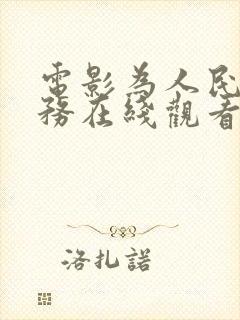 電影為人民
務在綫觀看
洛扎諾